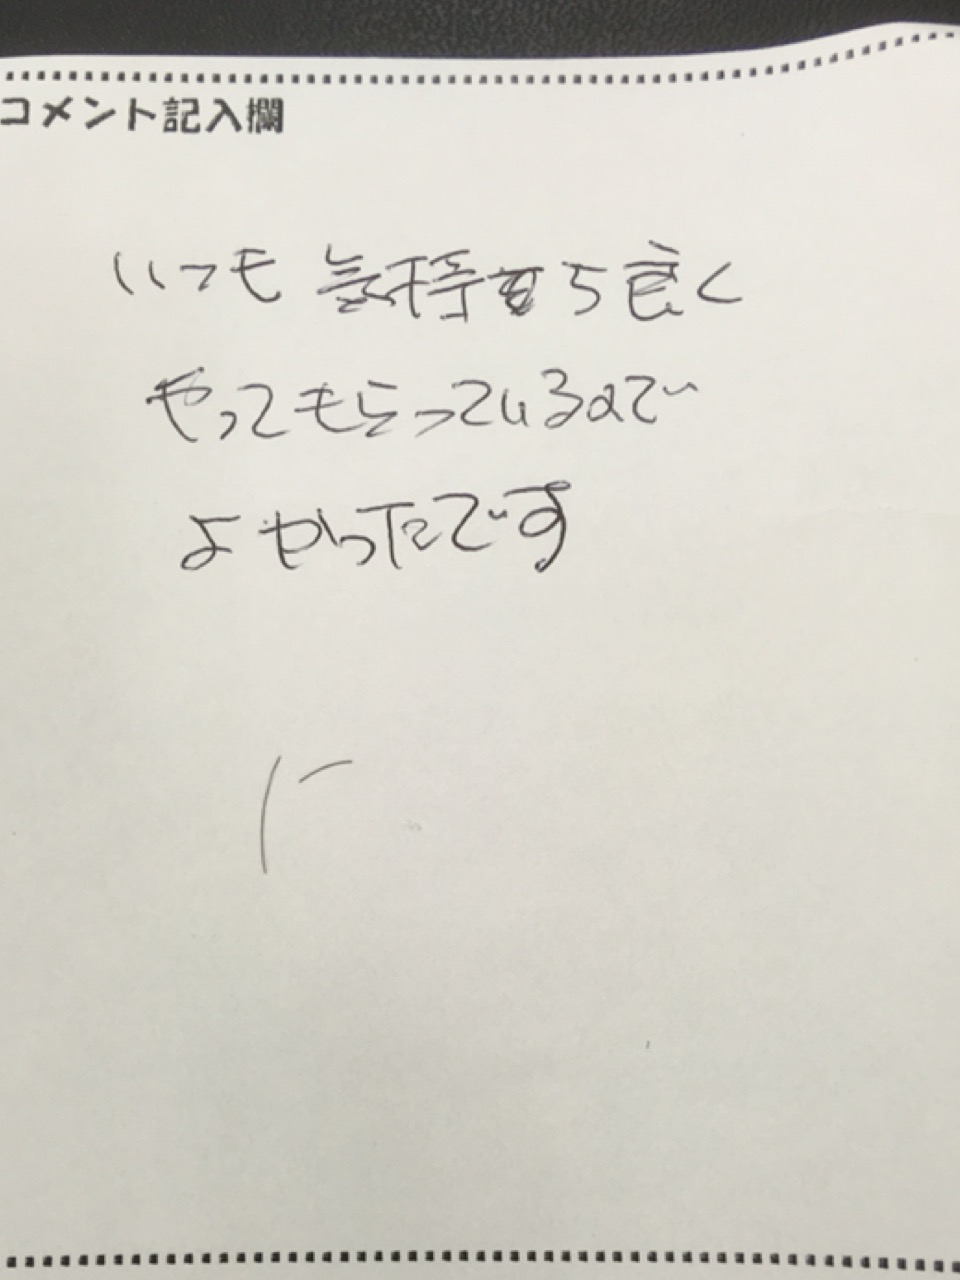 コメント記入欄
いつも気持ち良く
やってもらっているので
よかったです